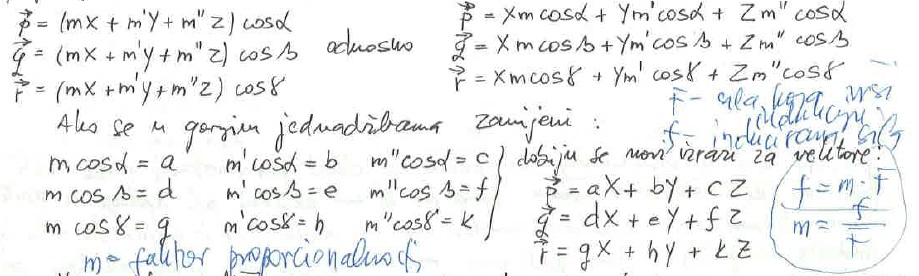 p⃗ = (mX + m'Y + m"Z) cosα
q⃗ = (mX + m'Y + m"Z) cosβ odnosno
r⃗ = (mX + m'Y + m"Z) cosγ
p⃗ = Xm cosα + Ym' cosα + Zm" cosα
q⃗ = Xm cosβ + Ym' cosβ + Zm" cosβ
r⃗ = Xm cosγ + Ym' cosγ + Zm" cosγ
F - sila koja vrši
indukciju
f - inducirana sila
Ako se u gornjim jednadžbama zamijeni:
m cosα = a m' cosα = b m" cosα = c
m cosβ = d m' cosβ = e m" cosβ = f
m cosγ = g m' cosγ = h m" cosγ = k
dobiju se novi izrazi za vektore:
p⃗ = aX + bY + cZ
q⃗ = dX + eY + fZ
r⃗ = gX + hY + kZ
f = m · F
m = f/F
m = faktor proporcionalnosti